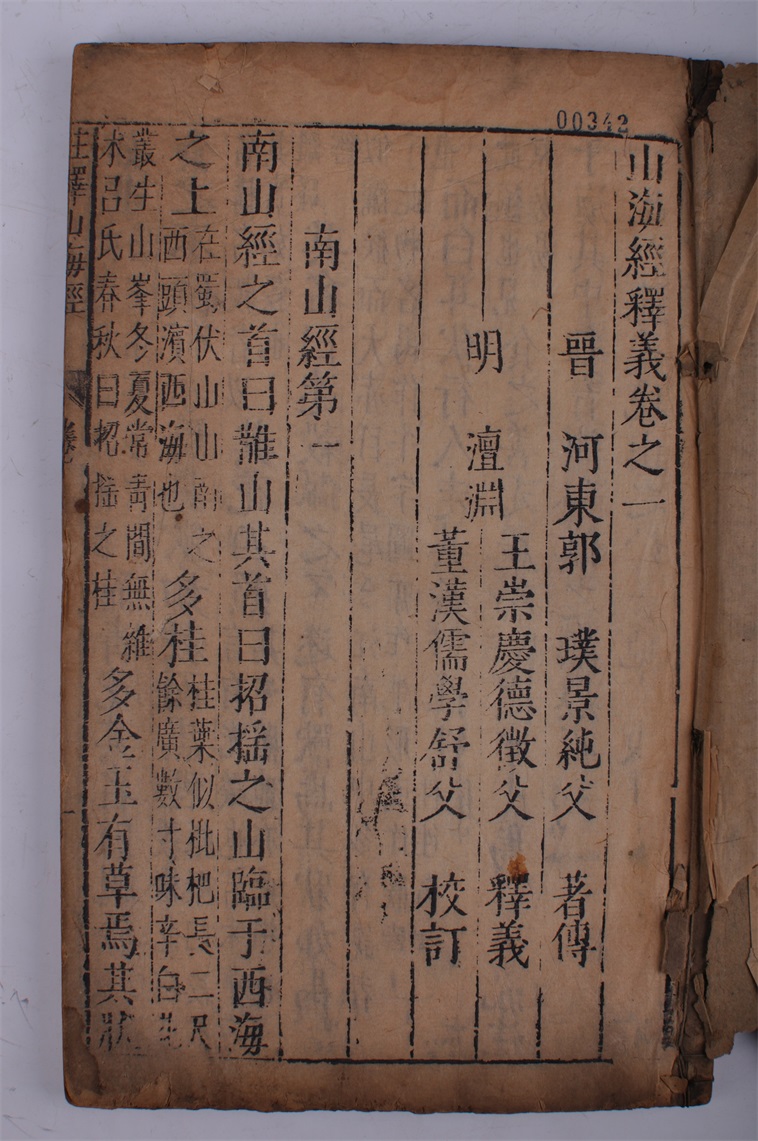 00342
山海經釋義卷之一
晉 河東郭 璞景純父 著傳
明 澶淵
王崇慶德徵父 釋義
董漢儒學舒父 校訂
南山經第一
南山經之首曰䧿山其首曰招搖之山臨于西海
之上在蜀伏山山南之西頭濱西海也多桂桂葉似枇杷長二尺餘廣數寸味辛白花
叢生山峯冬夏常青間無雜木呂氏春秋曰招搖之桂多金玉有草焉其狀
註釋山海經 卷一